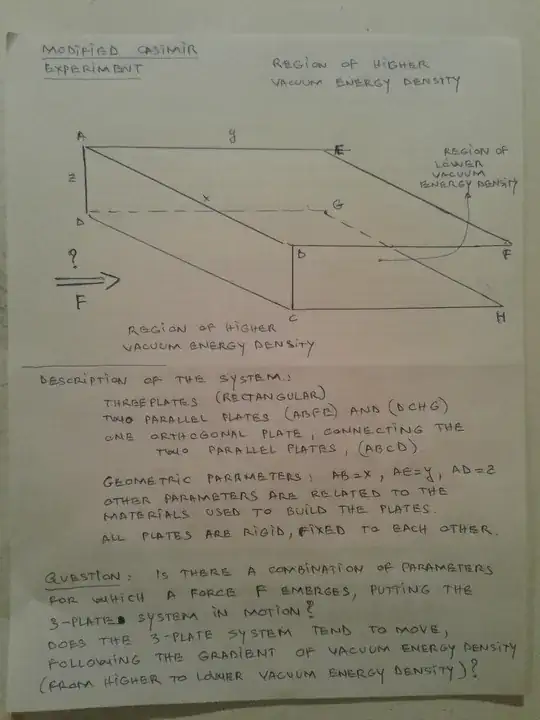 MODIFIED CASIMIR
EXPERIMENT
REGION OF HIGHER
VACUUM ENERGY DENSITY
A
y
E
REGION OF
LOWER
VACUUM
ENERGY DENSITY
z
x
D
G
?
B
F
F
C
H
REGION OF HIGHER
VACUUM ENERGY DENSITY
DESCRIPTION OF THE SYSTEM:
THREE PLATES (RECTANGULAR)
TWO PARALLEL PLATES (ABFE) AND (DCHG)
ONE ORTHOGONAL PLATE, CONNECTING THE
TWO PARALLEL PLATES, (ABCD)
GEOMETRIC PARAMETERS: AB=X, AE=y, AD=Z
OTHER PARAMETERS ARE RELATED TO THE
MATERIALS USED TO BUILD THE PLATES.
ALL PLATES ARE RIGID, FIXED TO EACH OTHER.
QUESTION: IS THERE A COMBINATION OF PARAMETERS
FOR WHICH A FORCE F EMERGES, PUTTING THE
3-PLATE SYSTEM IN MOTION?
DOES THE 3-PLATE SYSTEM TEND TO MOVE,
FOLLOWING THE GRADIENT OF VACUUM ENERGY DENSITY
(FROM HIGHER TO LOWER VACUUM ENERGY DENSITY)?